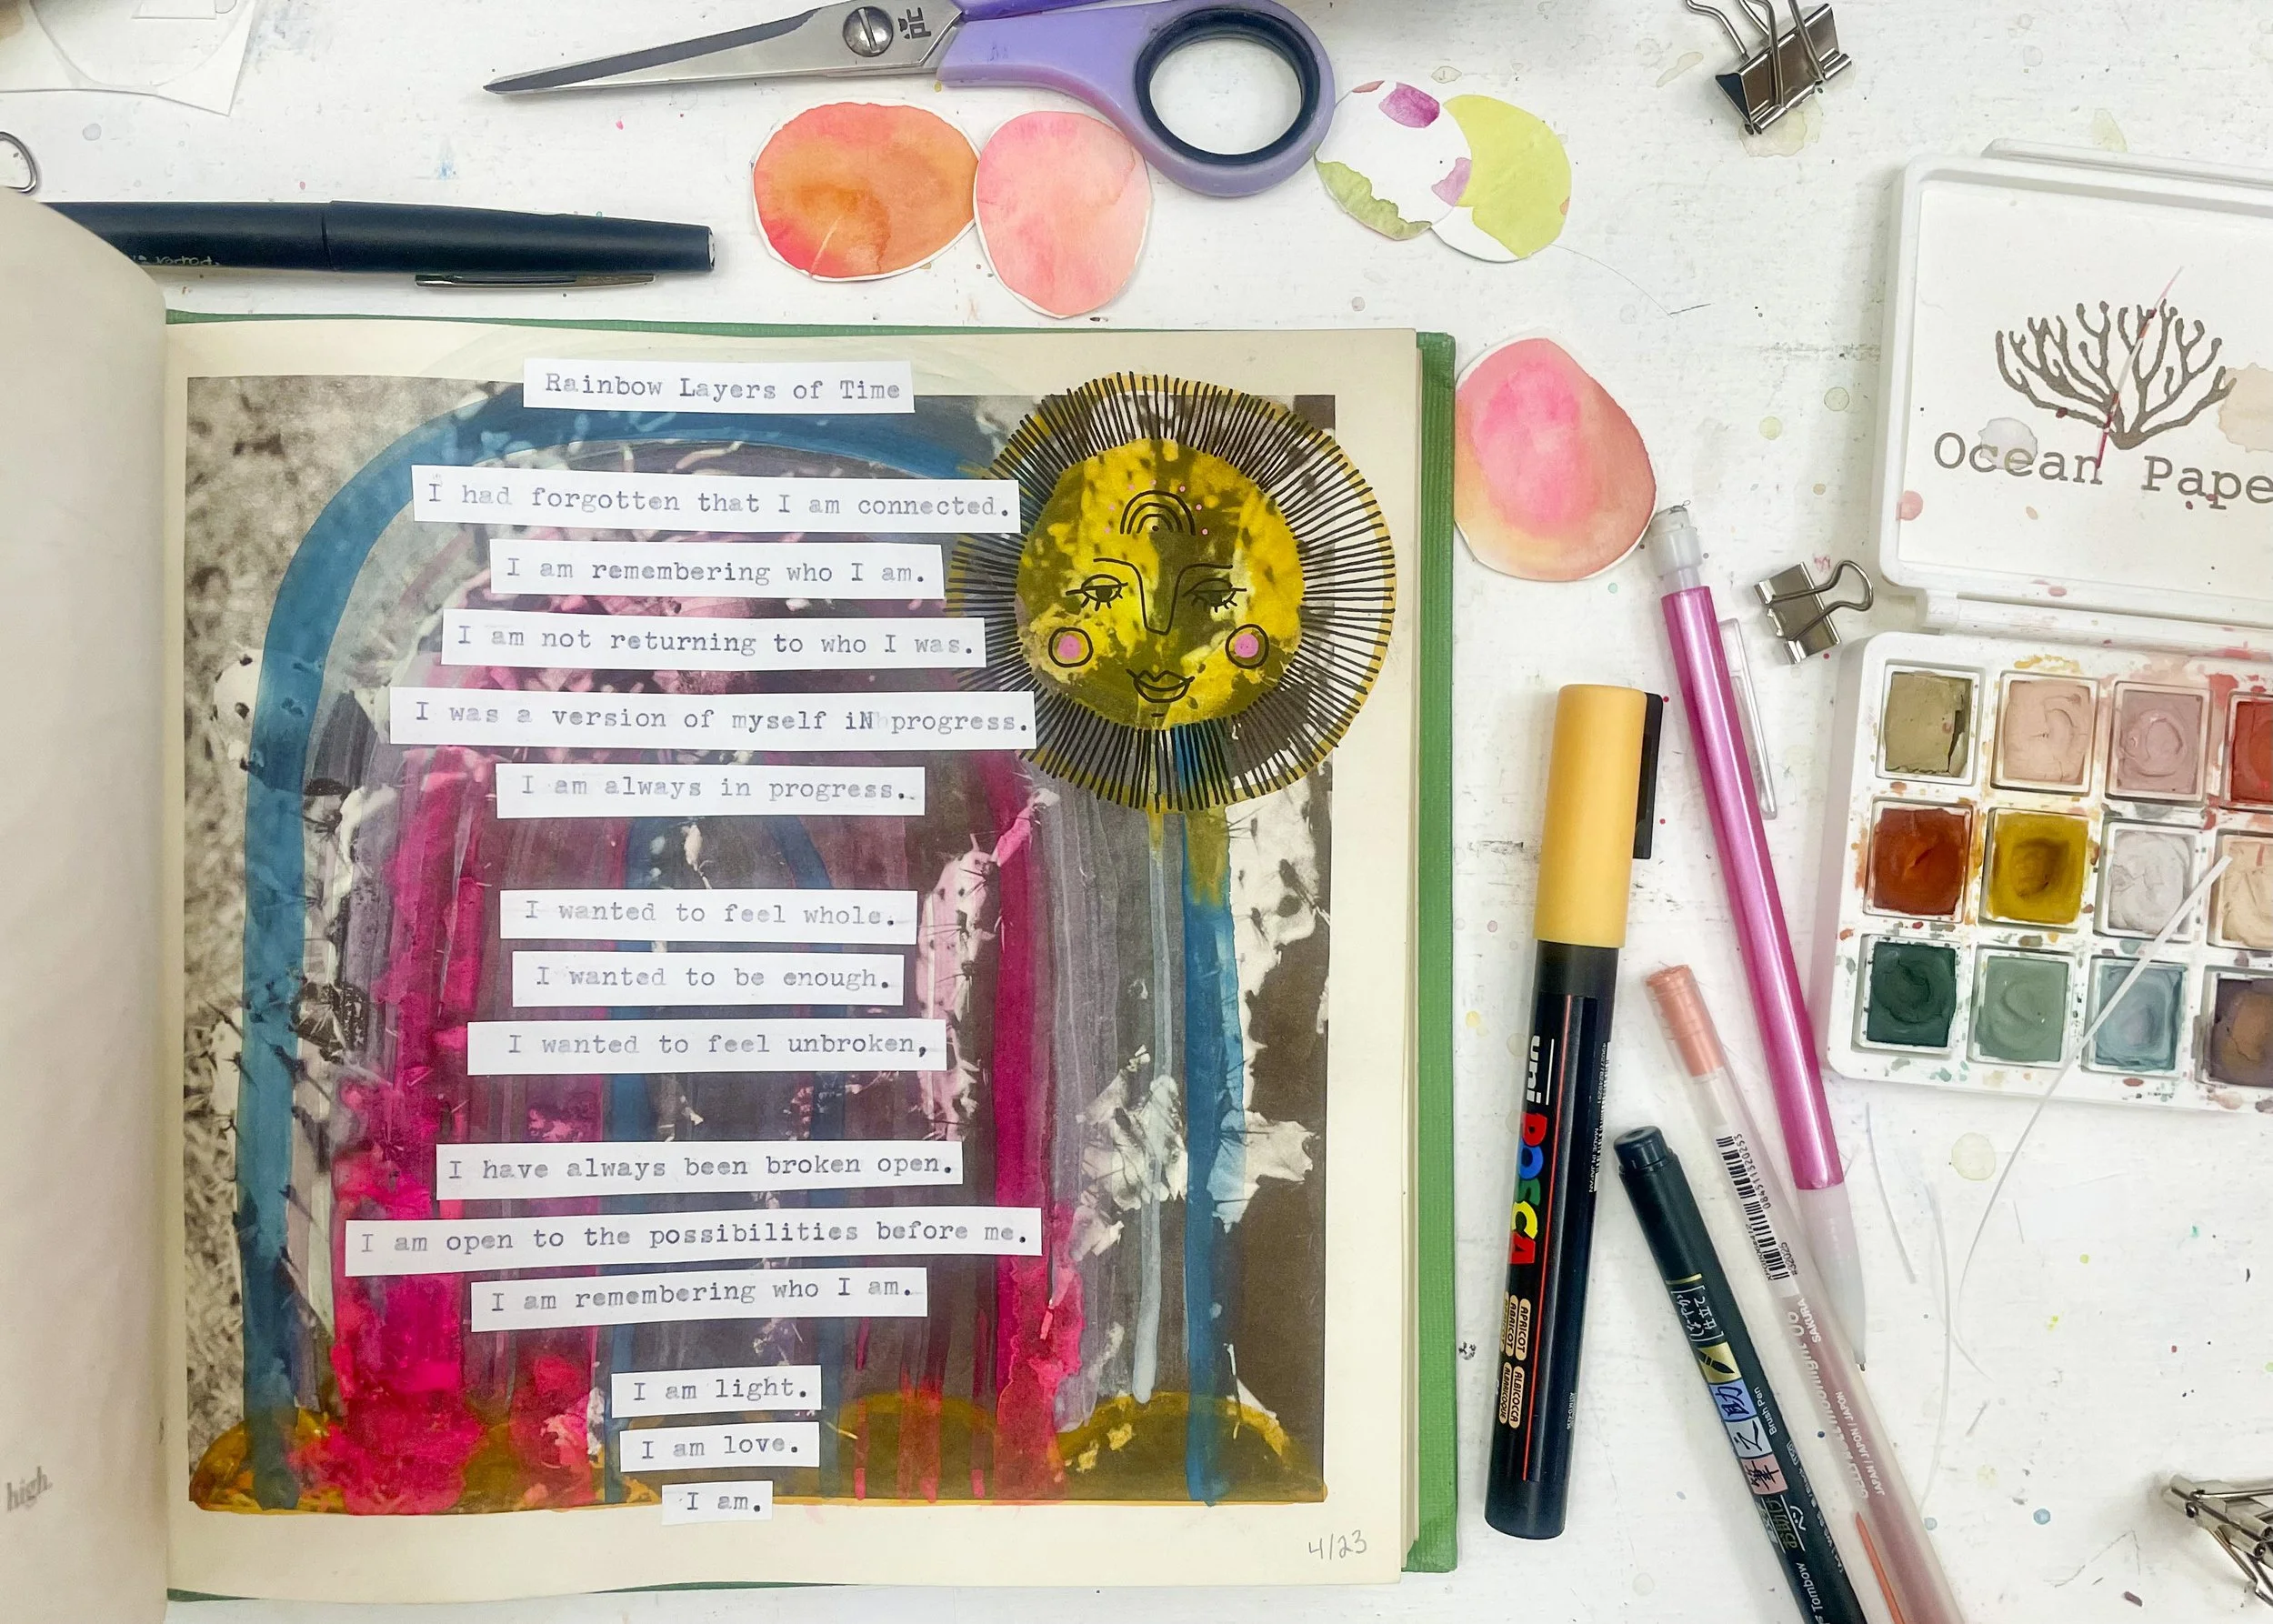 Rainbow Layers of Time
I had forgotten that I am connected.
I am remembering who I am.
I am not returning to who I was.
I was a version of myself iN progress.
I am always in progress.
I wanted to feel whole.
I wanted to be enough.
I wanted to feel unbroken,
I have always been broken open.
I am open to the possibilities before me.
I am remembering who I am.
I am light.
I am love.
I am.
4/23
high.
Ocean Pape
uni POSCA
APRICOT
ABRICOT
ALBICOCCA
Brush Pen
Tombow
SAKURA
JAPAN / JAPON